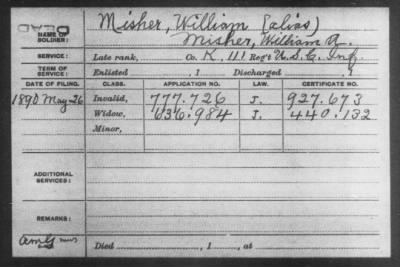 DEAD
NAME OF SOLDIER: Misher, William (alias)
Misher, William R.
SERVICE: Late rank, Co. K, 111 Reg't U.S.C. Inf.
TERM OF SERVICE: Enlisted , 1 Discharged , 1
DATE OF FILING. CLASS. APPLICATION NO. LAW. CERTIFICATE NO.
1890 May 26 Invalid, 777.726 J. 927.673
Widow, 636.984 J. 440.132
Minor,
ADDITIONAL SERVICES:
REMARKS:
Died , 1 , at